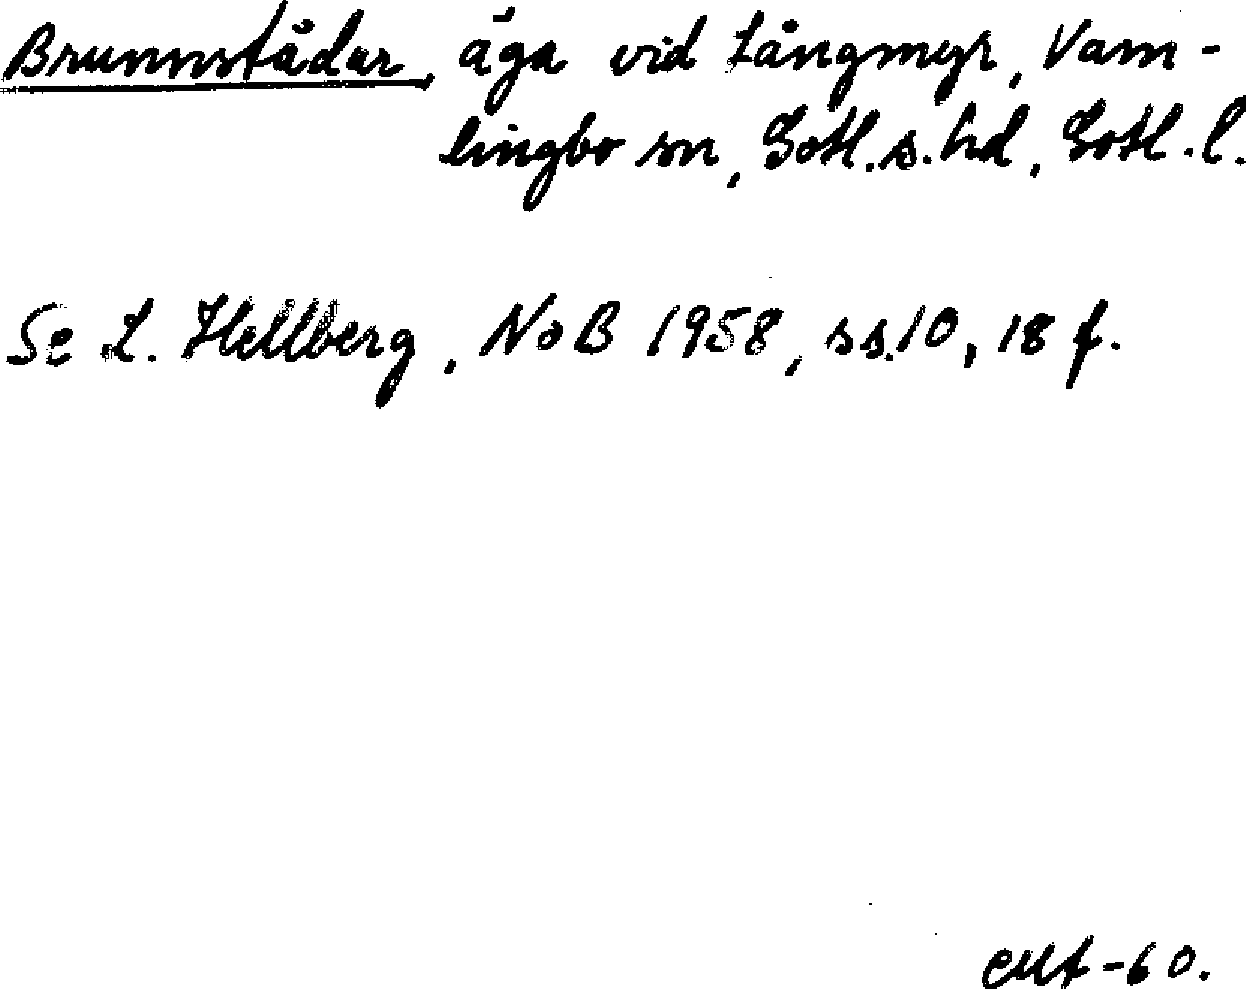 Brunnstådar, äga vid Långmyr, Vam-
lingbo sn, Gotl. s. hd, Gotl. l.
Se L. Hellberg, NoB 1958, ss. 10, 18 f.
-60.